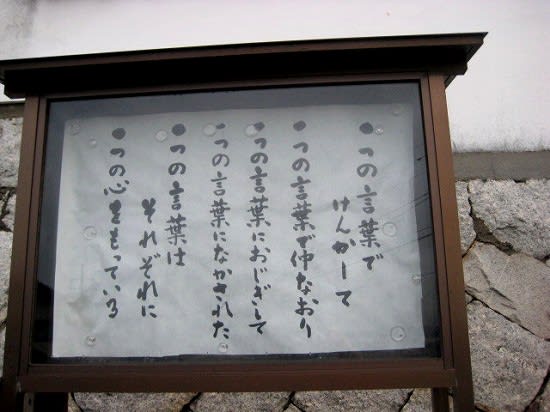 一つの言葉で
けんかして
一つの言葉で仲なおり
一つの言葉におじぎして
一つの言葉になかされた
一つの言葉は
それぞれに
一つの心をもっている